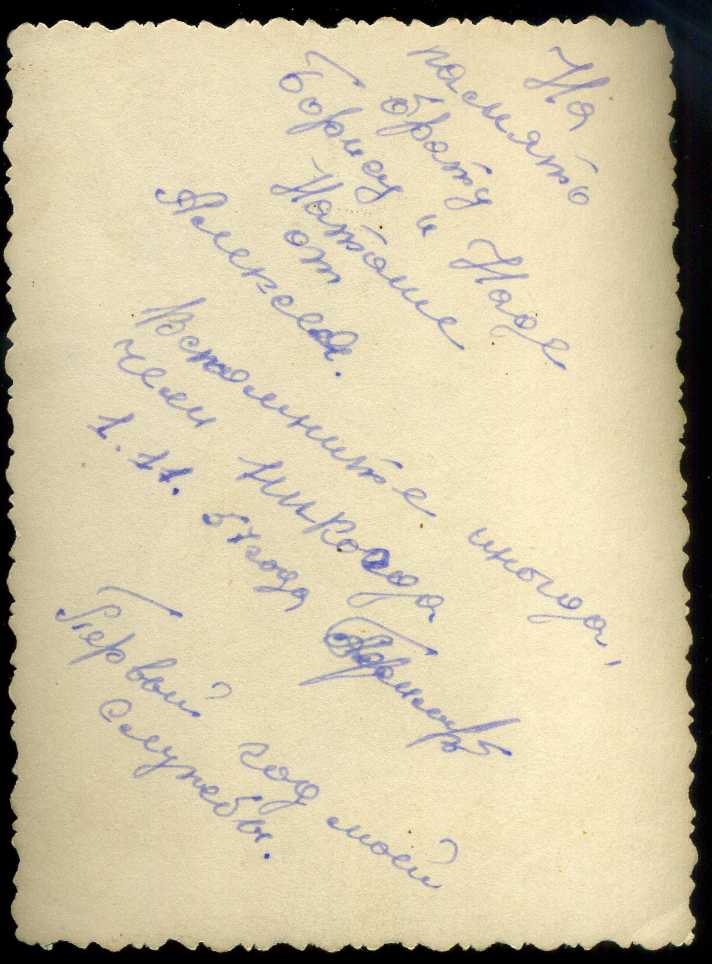 На
память
брату
Борису и Наде
Наташе
от
Алексея.
Вспомните иногда,
чем никогда
1.11. 57 года
Первый год моей
службы.